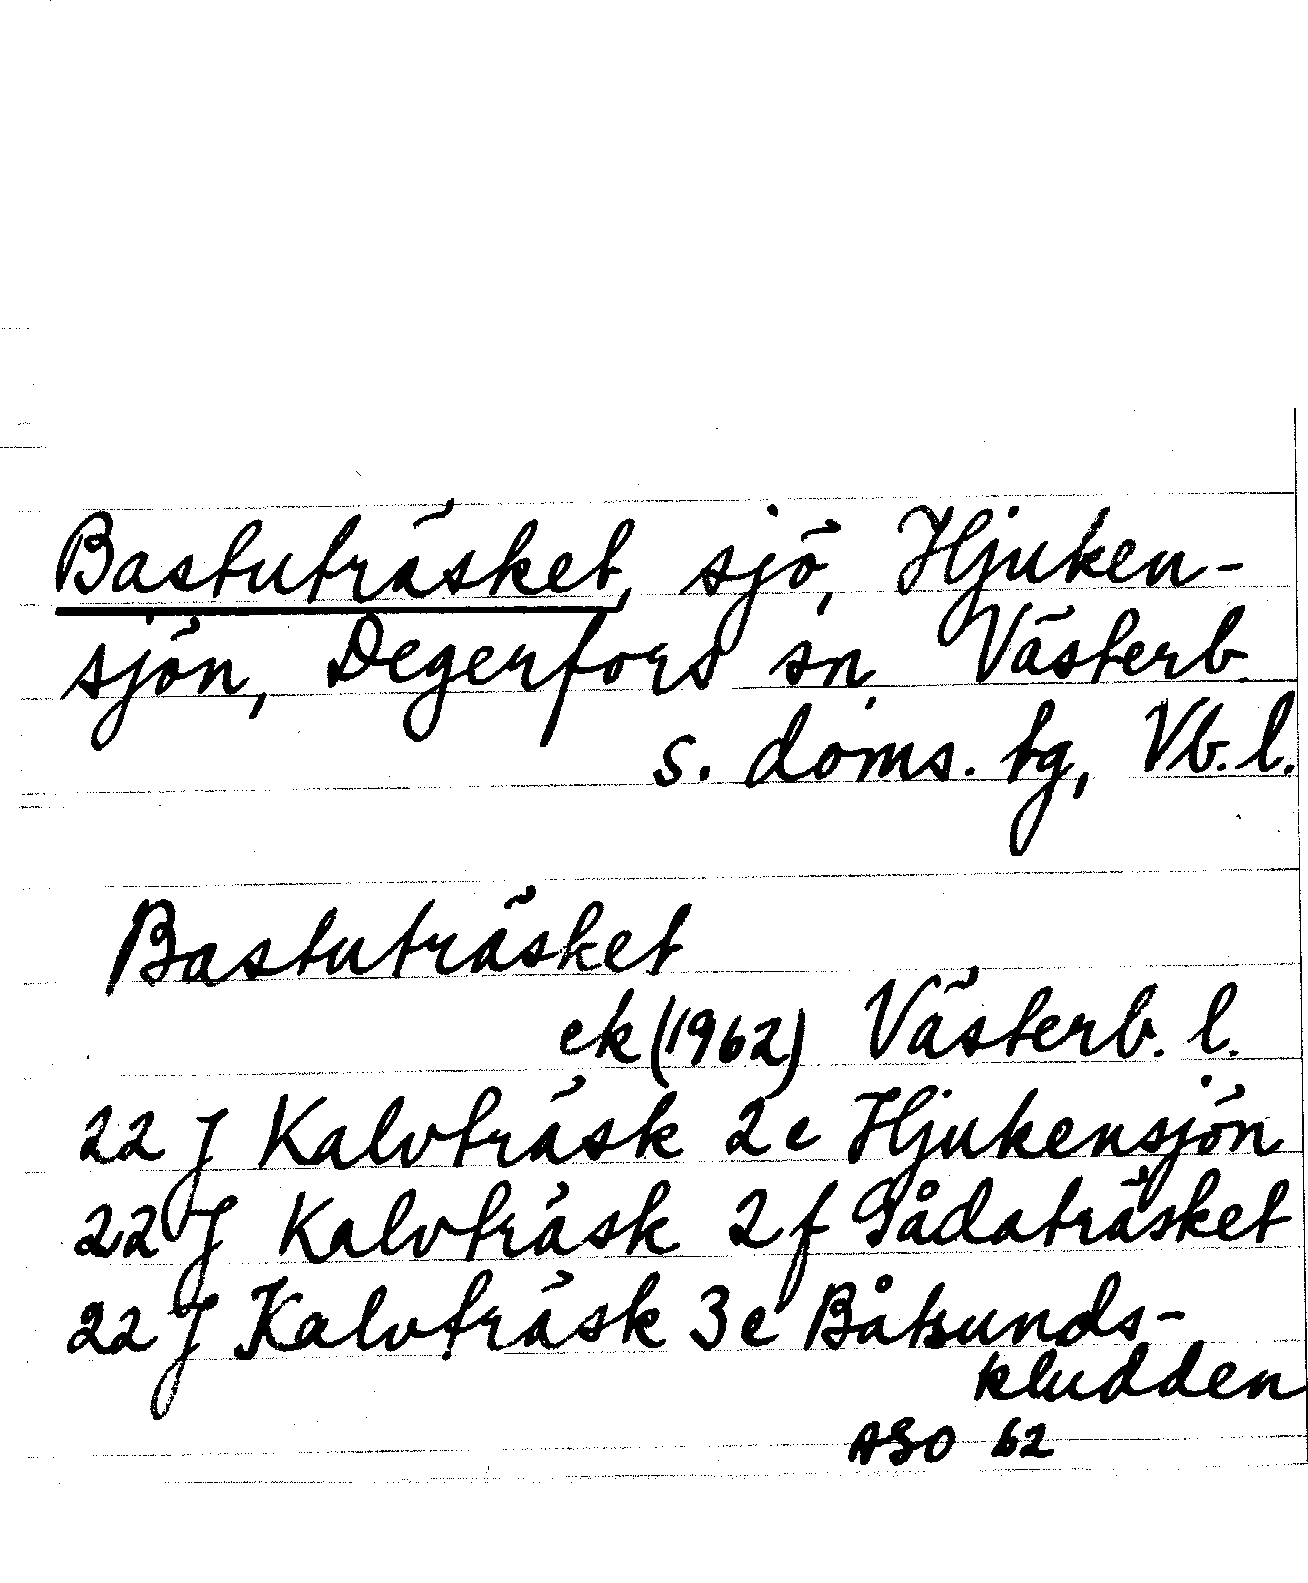 Bastuträsket, sjö, Hjuken-
sjön, Degerfors sn. Västerb.
s. doms. tg, Vb. l.
Bastuträsket
ek (1962) Västerb. l.
22 J Kalvträsk 2e Hjukensjön
22 J Kalvträsk 2f Gådaträsket
22 J Kalvträsk 3e Båtsunds-
kludden
ASO 62